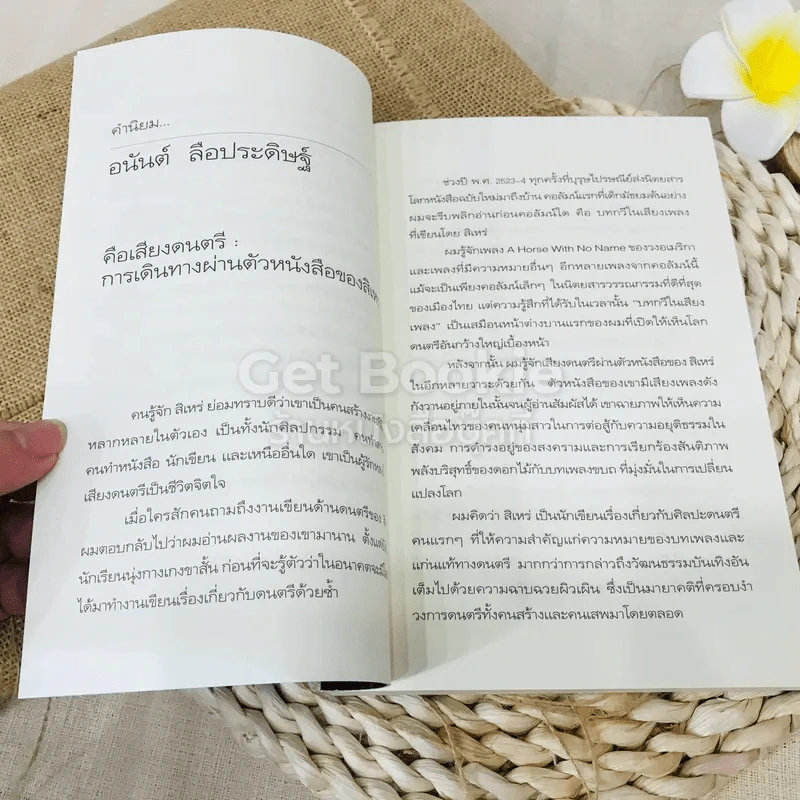 คำนิยม...
อนันต์ ลือประดิษฐ์
คือเสียงดนตรี :
การเดินทางผ่านตัวหนังสือของ
คนรู้จัก สิเหร่ ย่อมทราบดีว่าเขาเป็นคนสร้าง
หลากหลายในตัวเอง เป็นทั้งนักศิลปกรรม
คนทำหนังสือ นักเขียน และเหนืออื่นใด เขาเป็นผู้รัก
เสียงดนตรีเป็นชีวิตจิตใจ
เมื่อใครสักคนถามถึงงานเขียนด้านดนตรีของ
ผมตอบกลับไปว่าผมอ่านผลงานของเขามานาน
นักเรียนนุ่งกางเกงขาสั้น ก่อนที่จะรู้ตัวว่าในอนาคต
ได้มาทำงานเขียนเรื่องเกี่ยวกับดนตรีด้วยซ้ำ
ช่วงปี พ.ศ. 2523-4 ทุกครั้งที่บุรุษไปรษณีย์ส่งนิตยสาร
โลกหนังสือฉบับใหม่มาถึงบ้าน คอลัมน์แรกที่เด็กมัธยมต้นอย่าง
ผมจะรีบพลิกอ่านก่อนคอลัมน์ใด คือ บทกวีในเสียงเพลง
ที่เขียนโดย สิเหร่
ผมรู้จักเพลง A Horse With No Name ของวงอเมริกา
และเพลงที่มีความหมายอื่นๆ อีกหลายเพลงจากคอลัมน์นี้
แม้จะเป็นเพียงคอลัมน์เล็กๆ ในนิตยสารวรรณกรรมที่ดีที่สุด
ของเมืองไทย แต่ความรู้สึกที่ได้รับในเวลานั้น "บทกวีในเสียง
เพลง" เป็นเสมือนหน้าต่างบานแรกของผมที่เปิดให้เห็นโลก
ดนตรีอันกว้างใหญ่เบื้องหน้า
หลังจากนั้น ผมรู้จักเสียงดนตรีผ่านตัวหนังสือของ สิเหร่
ในอีกหลายวาระด้วยกัน ตัวหนังสือของเขามีเสียงเพลงดัง
กังวานอยู่ภายในนั้นจนผู้อ่านสัมผัสได้ เขาฉายภาพให้เห็นความ
เคลื่อนไหวของคนหนุ่มสาวในการต่อสู้กับความอยุติธรรมใน
สังคม การดำรงอยู่ของสงครามและการเรียกร้องสันติภาพ
พลังบริสุทธิ์ของดอกไม้กับบทเพลงขบถ ที่มุ่งมั่นในการเปลี่ยน
แปลงโลก
ผมคิดว่า สิเหร่ เป็นนักเขียนเรื่องเกี่ยวกับศิลปะดนตรี
คนแรกๆ ที่ให้ความสำคัญแก่ความหมายของบทเพลงและ
แก่นแท้ทางดนตรี มากกว่าการกล่าวถึงวัฒนธรรมบันเทิงอัน
เต็มไปด้วยความฉาบฉวยผิวเผิน ซึ่งเป็นมายาคติที่ครอบงำ
วงการดนตรีทั้งคนสร้างและคนเสพมาโดยตลอด
Get Bookie